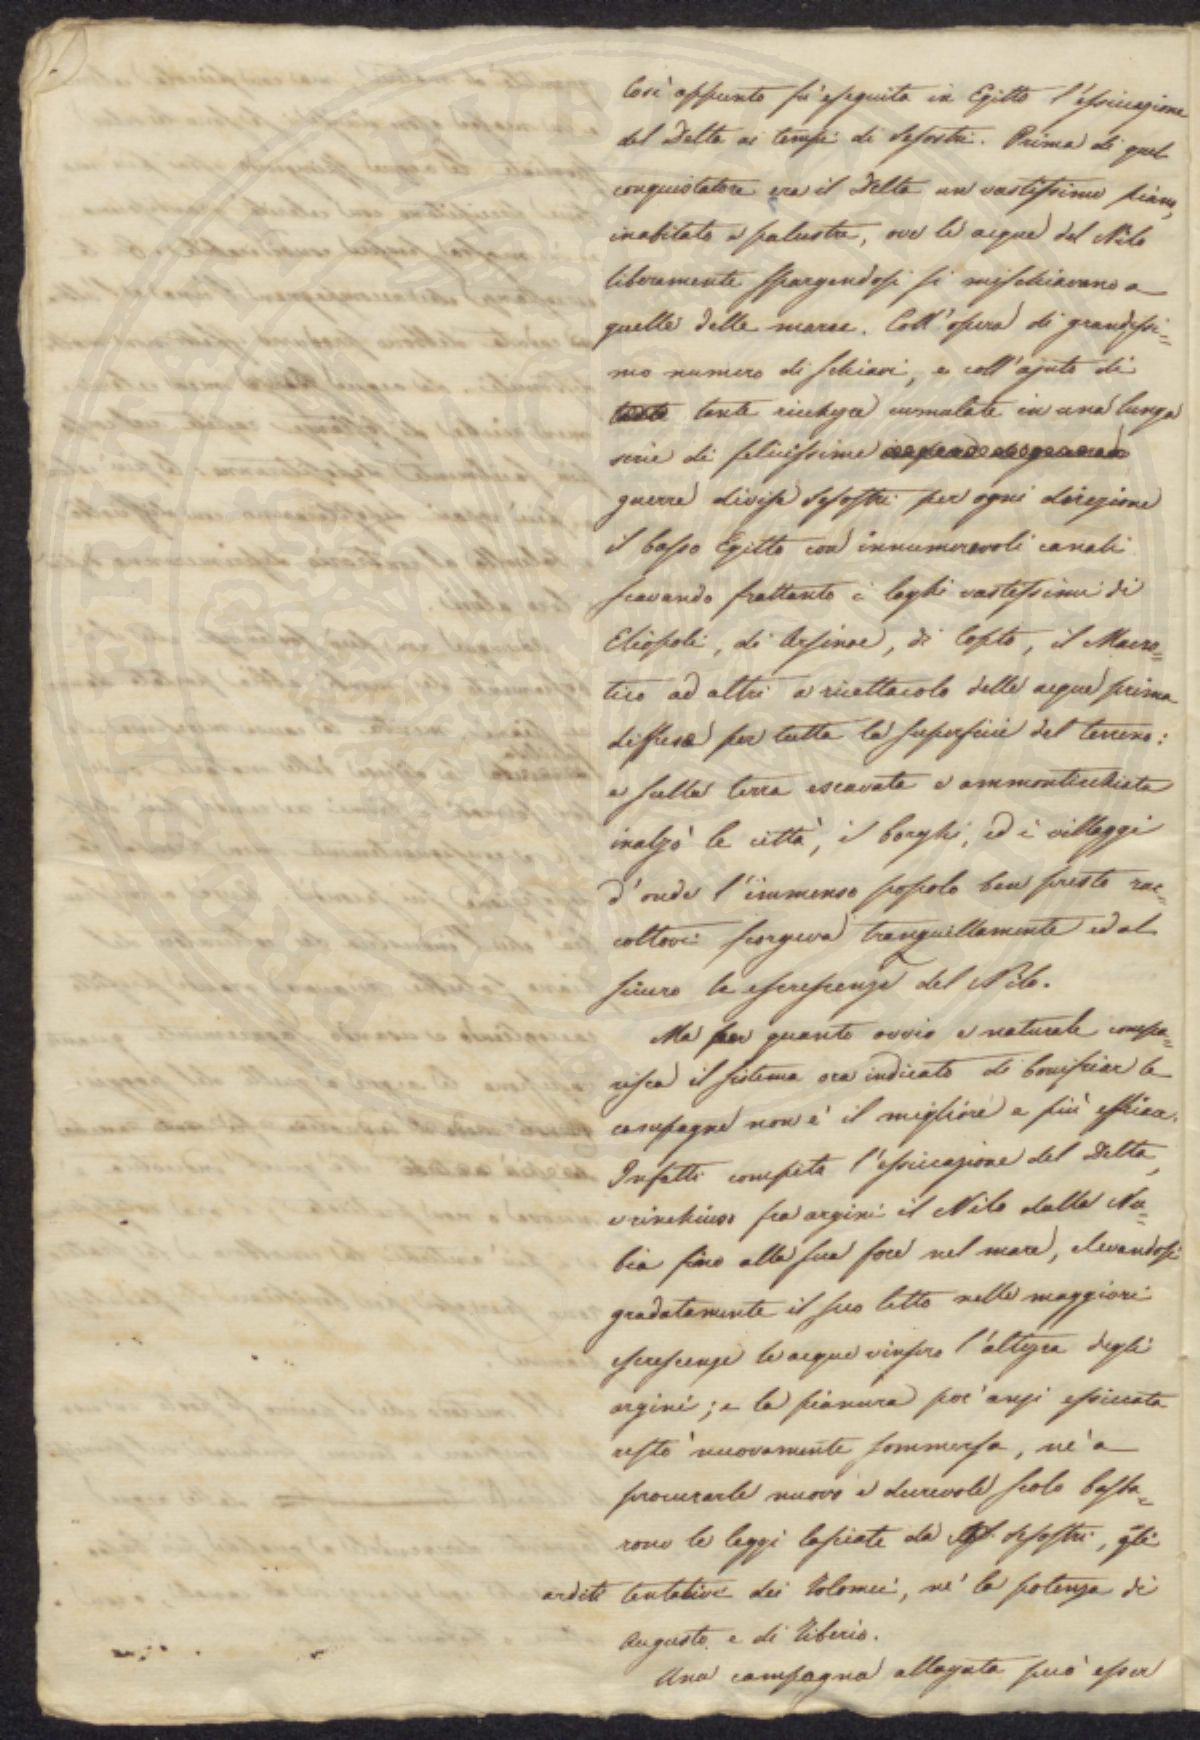 Così appunto fu eseguita in Egitto l'essiccazione
del Delta ai tempi di Sesostri. Prima di quel
conquistatore era il Delta un vastissimo piano,
inabitato e palustre, ove le acque del Nilo
liberamente spargendosi si mischiavano a
quelle delle maree. Coll'opera di grandissi=
mo numero di schiavi, e coll'ajuto di
tante tante ricchezze cumulate in una lunga
serie di felicissime
guerre divise Sesostri per ogni direzione
il basso Egitto con innumerevoli canali
scavando frattanto i laghi vastissimi di
Eliopoli, di Arsinoe, di Copto, il Mareo=
tico ad altri a ricettacolo delle acque prima
diffuse per tutta la superficie del terreno:
e sulla terra escavata e ammonticchiata
inalzò le città, i borghi, ed i villaggi
d'onde l'immenso popolo ben presto rac=
coltovi scorgeva tranquillamente ed al
sicuro le escrescenze del Nilo.
Ma per quanto ovvio e naturale compa=
risca il sistema ora indicato di bonificar le
campagne non è il migliore e più efficace.
Infatti compita l'essiccazione del Delta,
e rinchiuso fra argini il Nilo dalla Nu=
bia fino alla sua foce nel mare, elevandosi
gradatamente il suo letto nelle maggiori
escrescenze le acque vinsero l'altezza degli
argini; e la pianura poc'anzi essiccata
restò nuovamente sommersa, nè a
procurarle nuovo e durevole scolo basta=
rono le leggi lasciate da Sesostri, gli
arditi tentativi dei Tolomei, nè la potenza di
Augusto e di Tiberio.
Una campagna allagata può esser